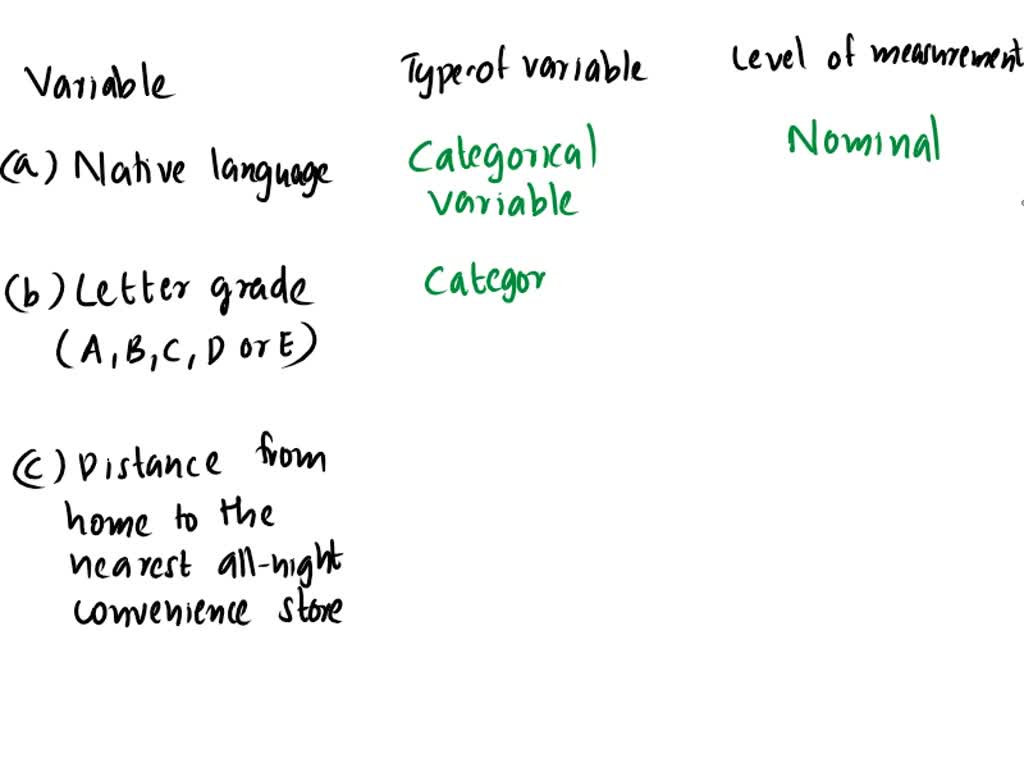 Variable Type of variable Level of measurement
(a) Native language Categorical Nominal
variable
(b) Letter grade Categor
(A, B, C, D or E)
(c) Distance from
home to the
nearest all-night
convenience store